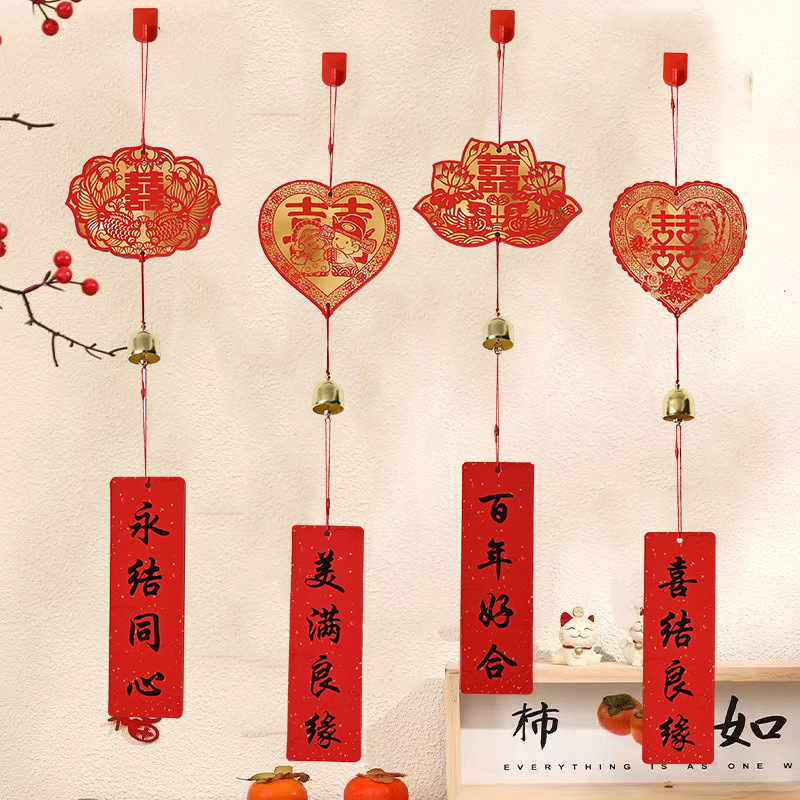 囍
永结同心
囍
美满良缘
囍
百年好合
囍
喜结良缘
柿 如
EVERYTHING IS AS ONE W